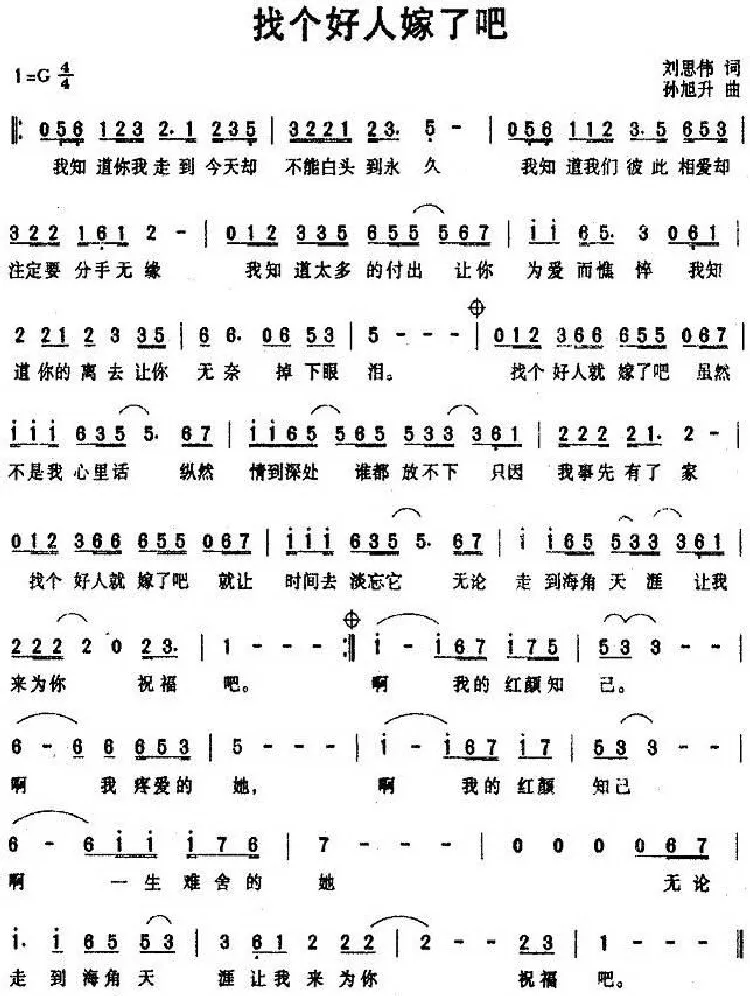 找个好人嫁了吧
1=G 4/4
刘思伟 词
孙旭升 曲
056 123 2. 1 235 | 3221 23. 5 - | 056 112 3. 5 653 |
我知 道你我 走 到 今天却 不能白头 到永 久 我知 道我们 彼 此 相爱却
322 161 2 - | 012 335 655 567 | i i 65. 3 061 |
注定要 分手无 缘 我知 道太多 的付出 让你 为 爱 而憔 悴 我知
2 21 2 3 35 | 6 6. 06 53 | 5 - - - | 012 366 655 067 |
道 你的 离 去 让你 无 奈 掉 下眼 泪。 找个 好人就 嫁了吧 虽然
i i i 635 5. 67 | i i65 565 533 361 | 222 21. 2 - |
不是我 心里话 纵然 情到深处 谁都 放不下 只因 我事先 有了 家
012 366 655 067 | i i i 635 5. 67 | i i65 533 361 |
找个 好人就 嫁了吧 就让 时间去 淡忘它 无论 走 到海角 天 涯 让我
222 2 0 23. | 1 - - - :‖ i - i67 i75 | 53 3 - - |
来为你 祝福 吧。 啊 我的 红颜知 己。
6 - 6 6 653 | 5 - - - | i - i67 i7 | 53 3 - - |
啊 我 疼爱的 她, 啊 我的 红颜 知己
6 - 6 i i i 76 | 7 - - - | 0 0 0 067 |
啊 一生 难舍的 她 无论
i. i 65 53 | 3 61 2 22 | 2 - - 23 | 1 - - - ‖
走 到 海角 天 涯 让我 来 为你 祝福 吧。